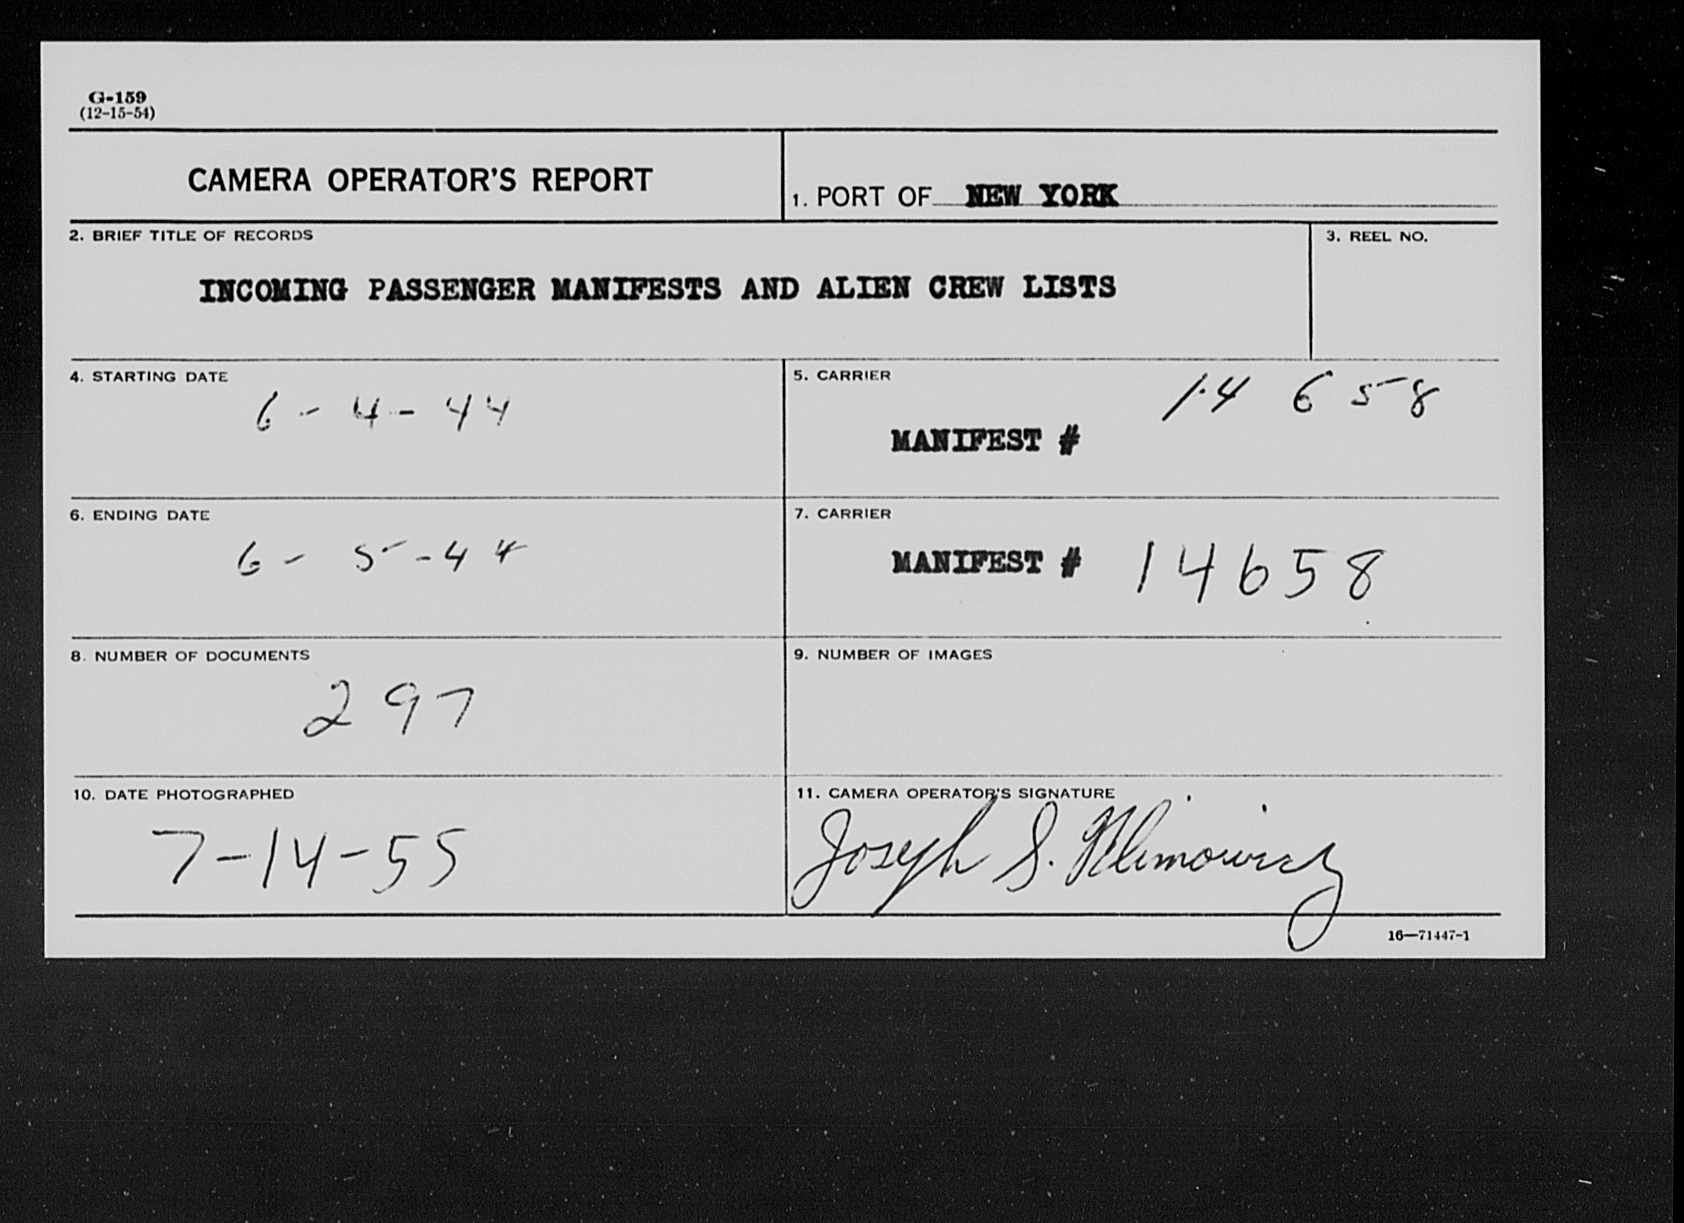 G-159
(12-15-54)
CAMERA OPERATOR'S REPORT
1. PORT OF NEW YORK
2. BRIEF TITLE OF RECORDS
3. REEL NO.
INCOMING PASSENGER MANIFESTS AND ALIEN CREW LISTS
4. STARTING DATE
6-4-44
5. CARRIER
14658
MANIFEST #
6. ENDING DATE
6-5-44
7. CARRIER
MANIFEST # 14658
8. NUMBER OF DOCUMENTS
297
9. NUMBER OF IMAGES
10. DATE PHOTOGRAPHED
7-14-55
11. CAMERA OPERATOR'S SIGNATURE
Joseph S. Klimowicz
16—71447-1